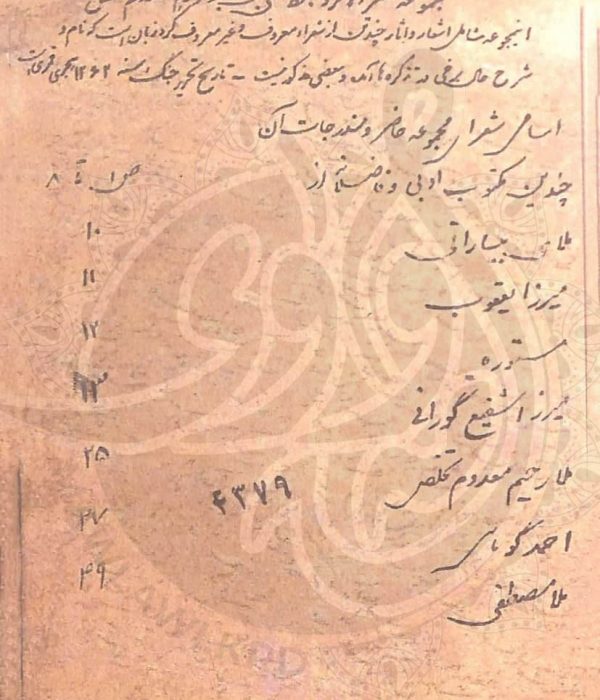 اینمجموعه شامل اشعار و آثار چند تن از شعراء معروف و غیر معروف کرد زبان است که نام و
شرح حال برخی در تذکره ها آمده و بعضی مذکور نیست - تاریخ تحریر جنگ سنه ۱۲۶۲ هجری قمری است
اسامی شعرای مجموعه حاضر و مندرجات آن
چندین مکتوب ادبی و فاضلانه از ص ۱ تا ۸
ملای بیسارانی ۱۰
میرزا یعقوب ۱۱
مستوره ۱۲
میرزا شفیع گورانی ۱۳
ملا رحیم معدوم تخلص ۲۵
۴۳۷۹
احمد کوماسی ۴۷
ملا مصطفی ۴۹